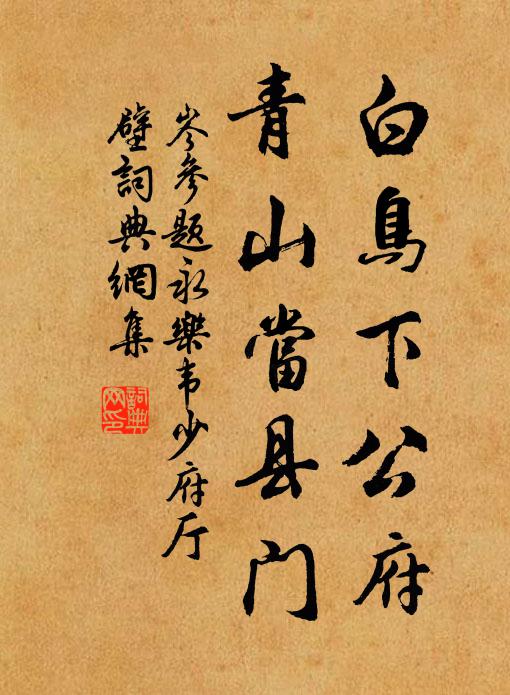 白鳥下公府
青山當县门
岑參題永樂韦少府厅
壁詞典網集
詞典
网印